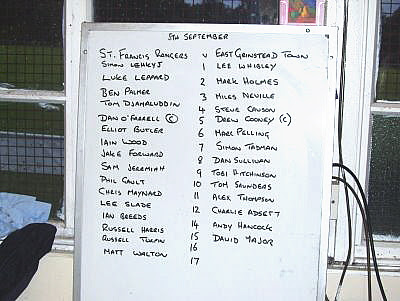 5TH SEPTEMBER
ST. FRANCIS RANGERS V EAST GRINSTEAD TOWN
SIMON LEHKYJ 1 LEE WHIBLEY
LUKE LEPPARD 2 MARK HOLMES
BEN PALMER 3 MILES NEVILLE
TOM DJAMALUDDIN 4 STEVE CAWSON
DAN O'FARRELL (C) 5 DREW COONEY (C)
ELLIOT BUTLER 6 MARC PELLING
IAIN WOOD 7 SIMON TADMAN
JAKE FORWARD 8 DAN SULLIVAN
SAM JEREMIAH 9 TOBI HUTCHINSON
PHIL CAULT 10 TOM SAUNDERS
CHRIS MAYNARD 11 ALEX THOMPSON
LEE SLADE 12 CHARLIE ADSETT
IAN BREEDS 14 ANDY HANCOCK
RUSSELL HARRIS 15 DAVID MAJOR
RUSSELL TURPIN 16
MATT WALTON 17